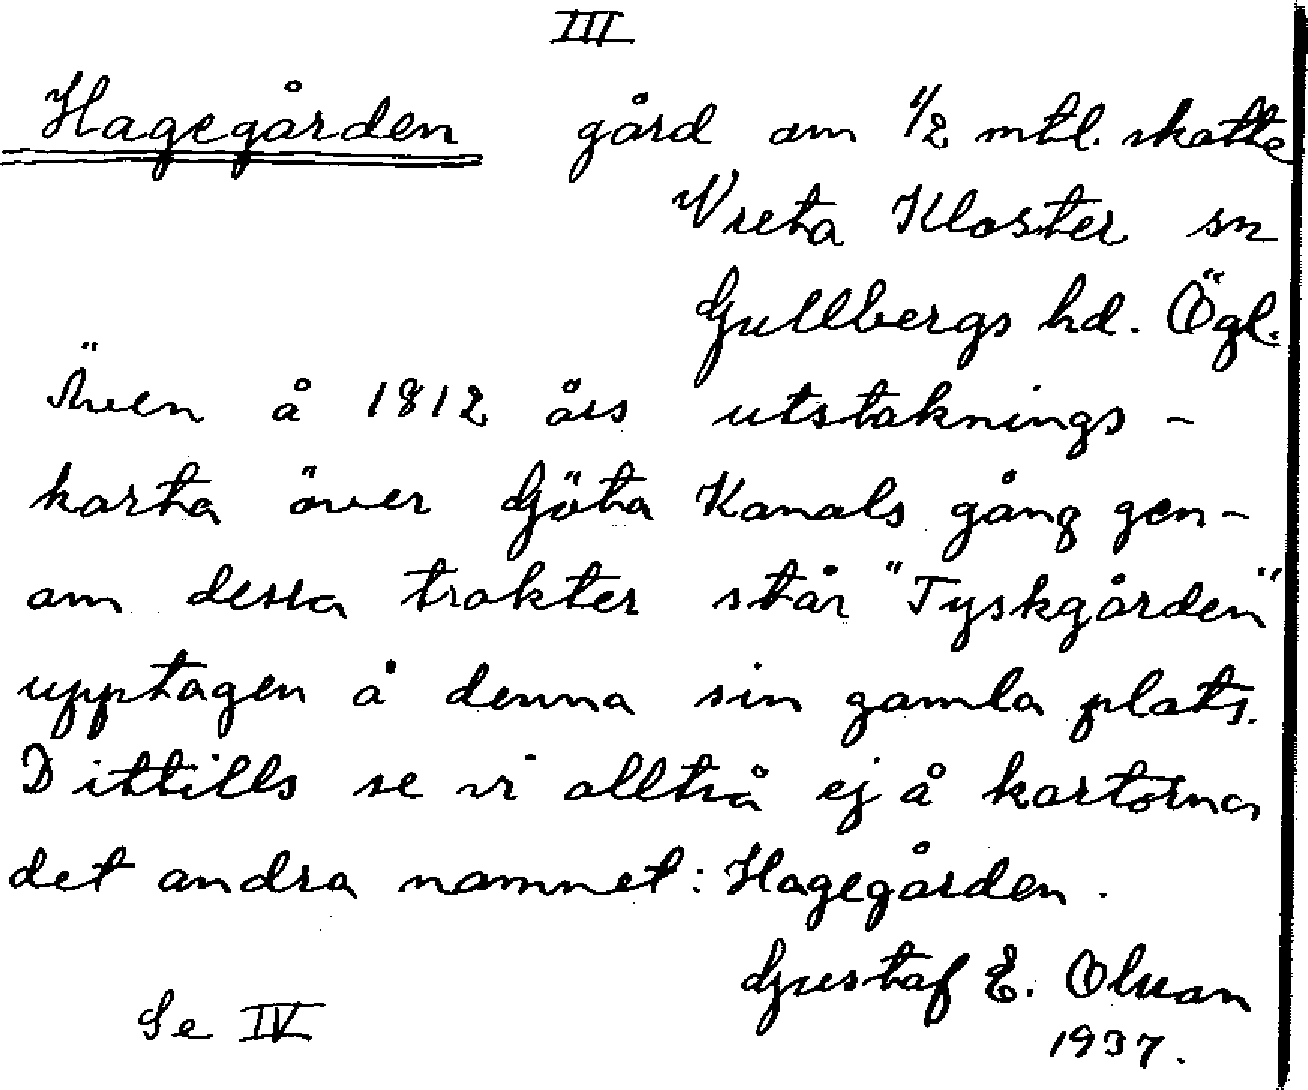 III
Hagegården gård om 1/2 mtl. skatte
Vreta Kloster sn
Gullbergs hd. Ögl.
Även å 1812 års utstaknings-
karta över Göta Kanals gång gen-
om dessa trakter står "Tyskgården"
upptagen å denna sin gamla plats.
Dittills se vi alltså ej å kartorna
det andra namnet: Hagegården.
Gustaf E. Olsson
1937.
Se IV